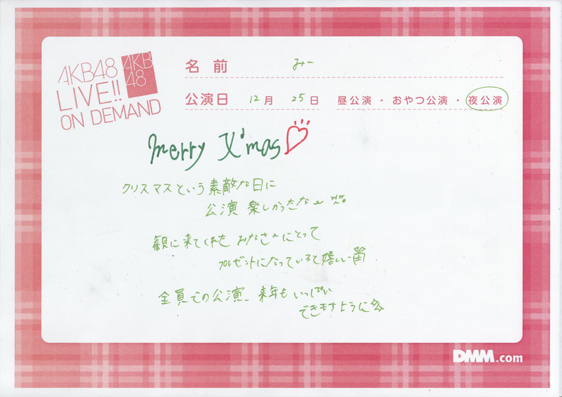 AKB48
LIVE!!
ON DEMAND
AKB
48
名前 みー
公演日 12月 25日 昼公演・おやつ公演・夜公演
Merry X'mas
クリスマスという素敵な日に
公演 楽しかったなぁ
観に来てくれた みなさんにとって
プレゼントになっていると嬉しい
全員での公演、来年も いっぱい
できますように
DMM.com